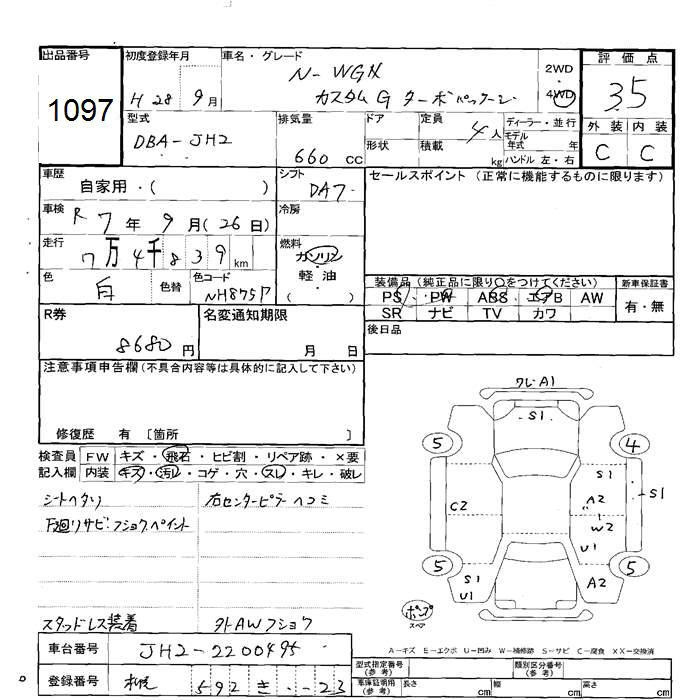 出品番号
1097
初度登録年月
H 28 9月
車名・グレード
N-WGN
カスタムG ターボパッケージ
2WD
4WD
評価点
3.5
外装 内装
C C
型式
DBA-JH2
排気量
660 cc
ドア
形状
定員
4人
積載
kg
ディーラー・並行
モデル
年式 年
ハンドル 左・右
車歴
自家用・( )
シフト
DA7
セールスポイント (正常に機能するものに限ります)
車検
R 7年 9月(26日)
冷房
走行
7万4千839km
燃料
ガソリン
軽油
( )
色
白
色替
色コード
NH875P
装備品(純正品に限り○をつけてください)
PS PW ABS エアB AW
SR ナビ TV カワ
新車保証書
有・無
R券
8680円
名変通知期限
月 日
後日品
注意事項申告欄(不具合内容等は具体的に記入して下さい)
修復歴 有 〔箇所 〕
検査員
記入欄
FW キズ・飛石・ヒビ割・リペア跡・×要
内装 キズ・汚レ・コゲ・穴・スレ・キレ・破レ
シートヘタリ
右センターピラーヘコミ
下廻リサビ・フショクペイント
スタッドレス装着
外AWフショウ
ワレ・A1
S1
5
4
S1
A2
S1
C2
W2
U1
5
5
S1
U1
A2
ポンプ
スペア
A-キズ E-エクボ U-凹み W-補修跡 S-サビ C-腐食 XX-交換済
車台番号
JH2-2200495
登録番号
札幌 592 き ・・23
型式指定番号
(参考)
類別区分番号
(参考)
車庫証明用
(参考)
長さ cm
幅 cm
高さ cm